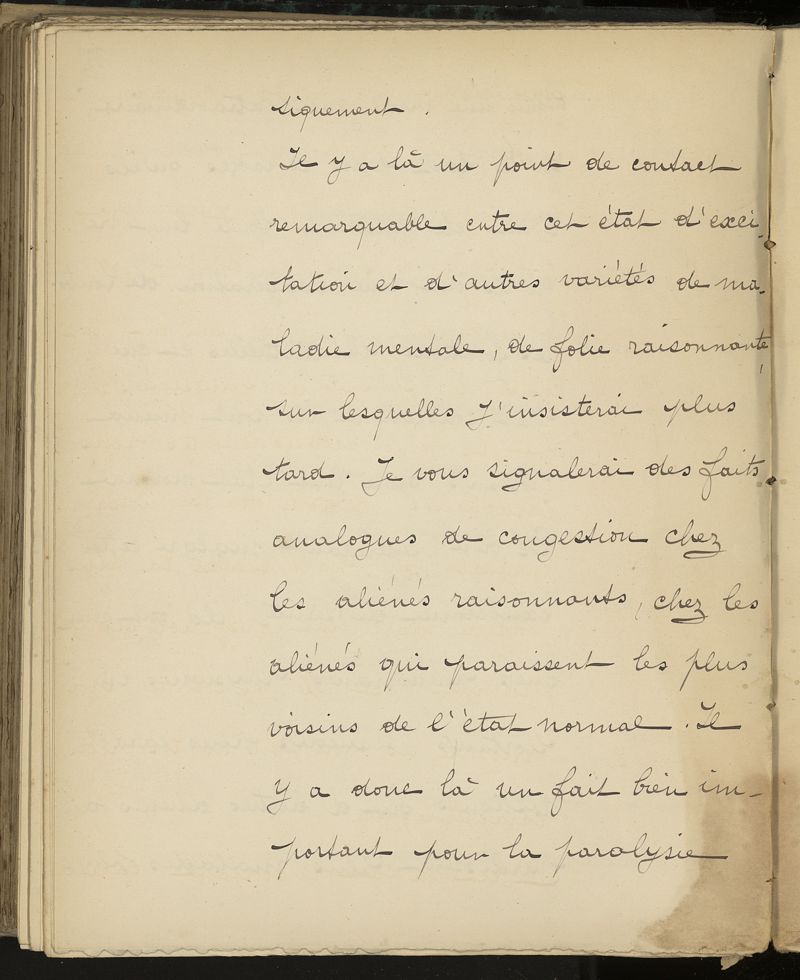 siquement.
Il y a là un point de contact
remarquable entre cet état d'exci-
tation et d'autres variétés de ma-
ladie mentale, de folie raisonnante,
sur lesquelles j'insisterai plus
tard. Je vous signalerai des faits
analogues de congestion chez
les aliénés raisonnants, chez les
aliénés qui paraissent les plus
voisins de l'état normal. Il
y a donc là un fait bien im-
portant pour la paralysie